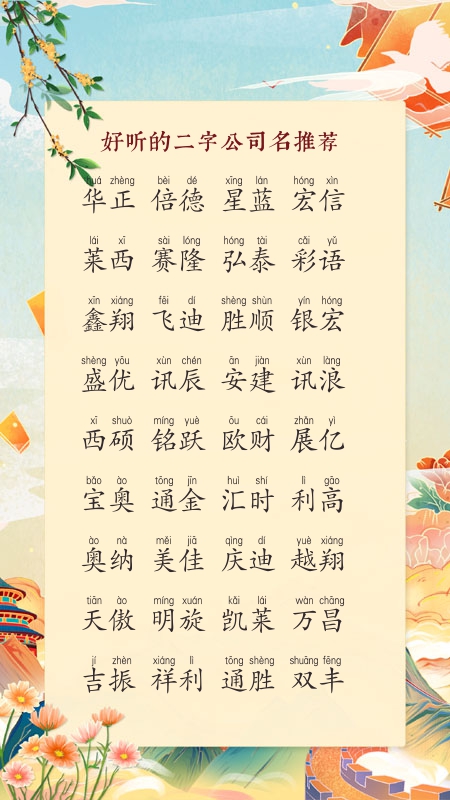 好听的二字公司名推荐
huá zhèng bèi dé xīng lán hóng xìn
华正 倍德 星蓝 宏信
lái xī sài lóng hóng tài cǎi yǔ
莱西 赛隆 弘泰 彩语
xīn xiáng fēi dí shèng shùn yín hóng
鑫翔 飞迪 胜顺 银宏
shèng yōu xùn chén ān jiàn xùn làng
盛优 讯辰 安建 讯浪
xī shuò míng yuè ōu cái zhǎn yì
西硕 铭跃 欧财 展亿
bǎo ào tōng jīn huì shí lì gāo
宝奥 通金 汇时 利高
ào nà měi jiā qìng dí yuè xiáng
奥纳 美佳 庆迪 越翔
tiān ào míng xuán kǎi lái wàn chāng
天傲 明旋 凯莱 万昌
jí zhèn xiáng lì tōng shèng shuāng fēng
吉振 祥利 通胜 双丰